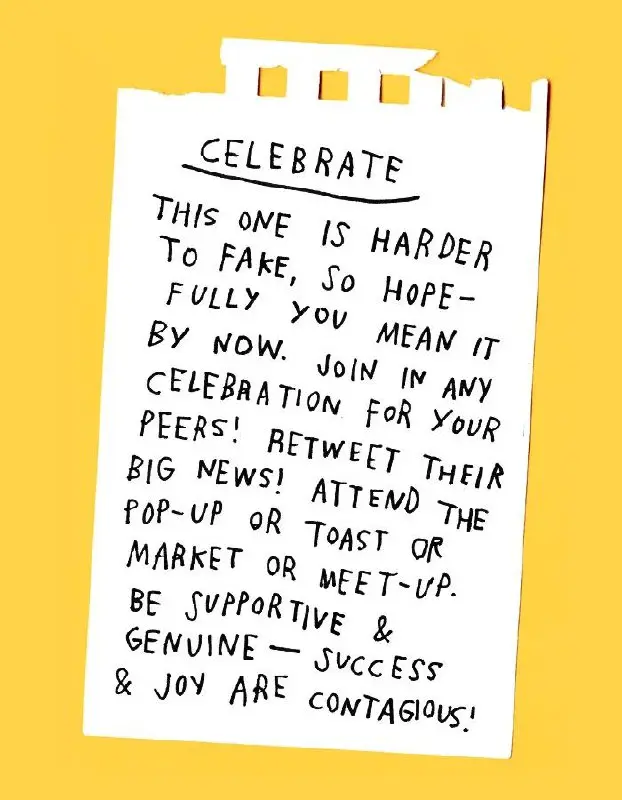 CELEBRATE
THIS ONE IS HARDER
TO FAKE, SO HOPE-
FULLY YOU MEAN IT
BY NOW. JOIN IN ANY
CELEBRATION FOR YOUR
PEERS! RETWEET THEIR
BIG NEWS! ATTEND THE
POP-UP OR TOAST OR
MARKET OR MEET-UP.
BE SUPPORTIVE &
GENUINE — SUCCESS
& JOY ARE CONTAGIOUS!